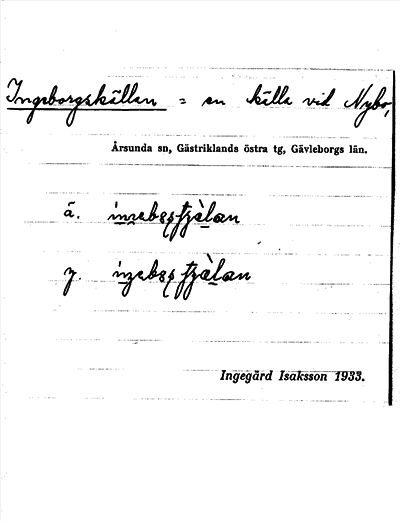 Ingeborgskällan = en källa vid Nybo,
Årsunda sn, Gästriklands östra tg, Gävleborgs län.
ä.
y.
Ingegärd Isaksson 1933.